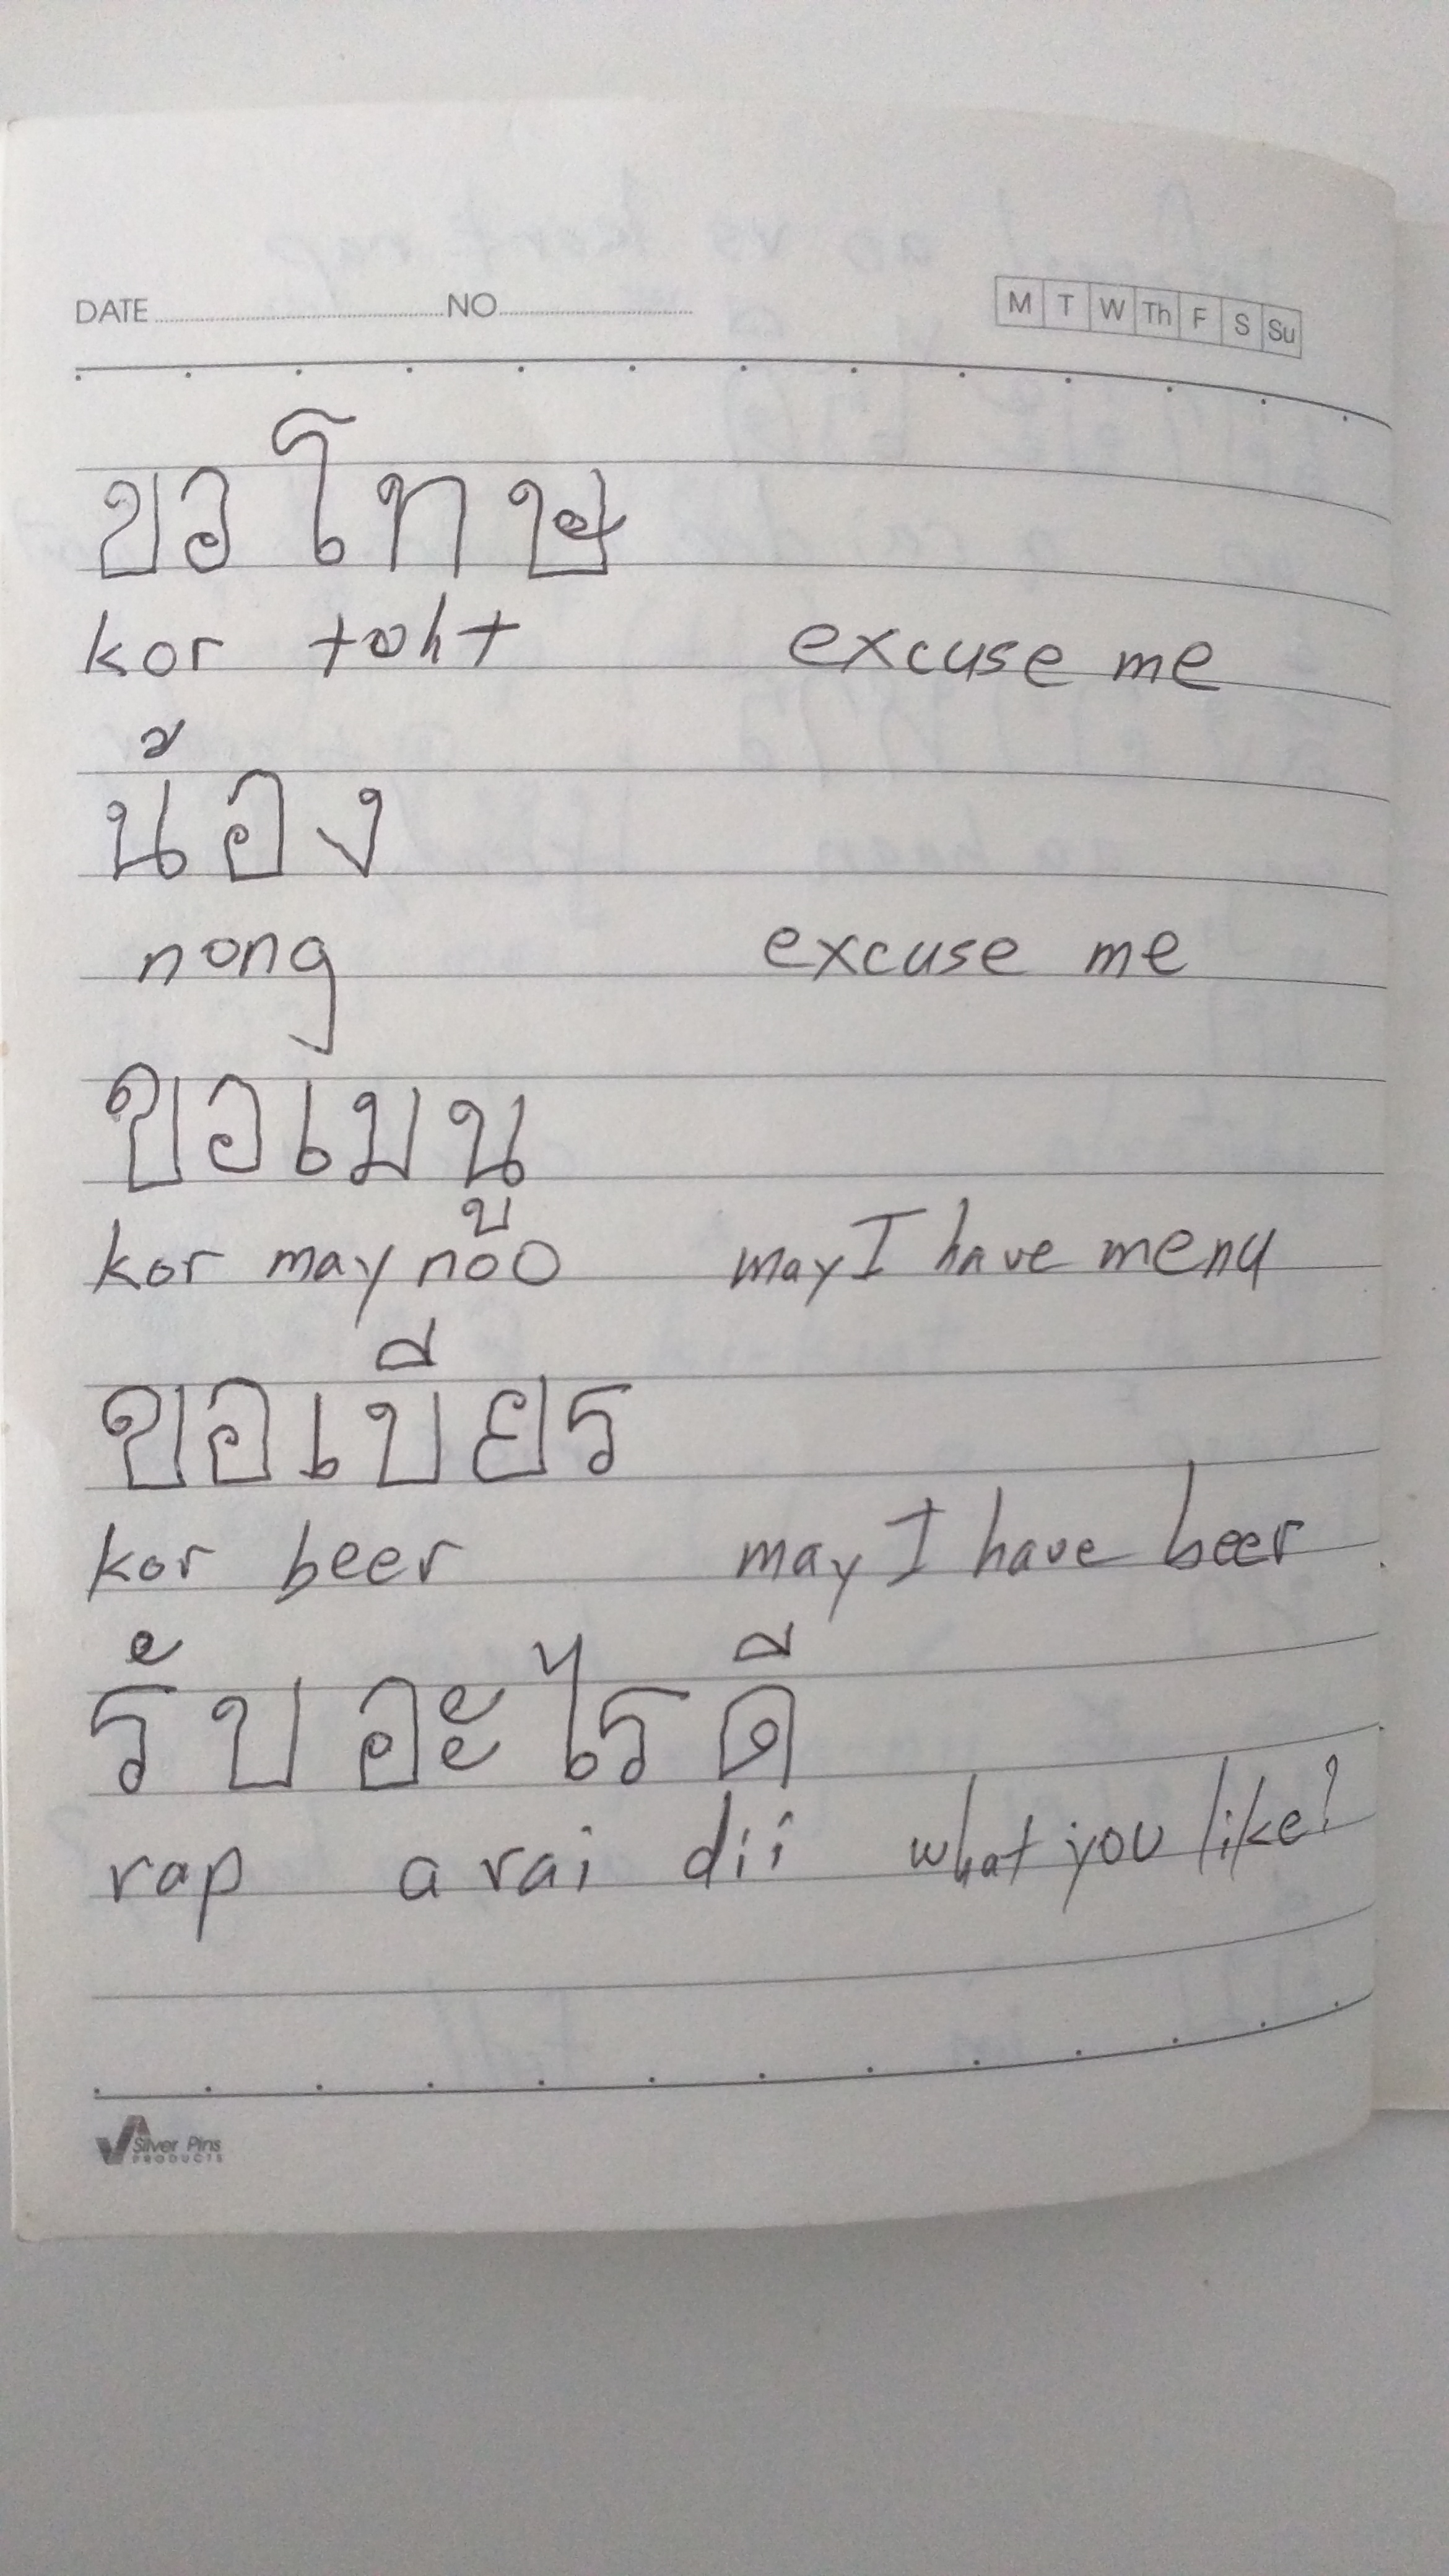 DATE NO M T W Th F S Su
ขอโทษ
kor toht excuse me
น้อง
nong excuse me
ขอเมนู
kor may noo may I have menu
ขอเบียร
kor beer may I have beer
รับอะไรดี
rap a rai dii what you like?
Silver Pins
PRODUCTS